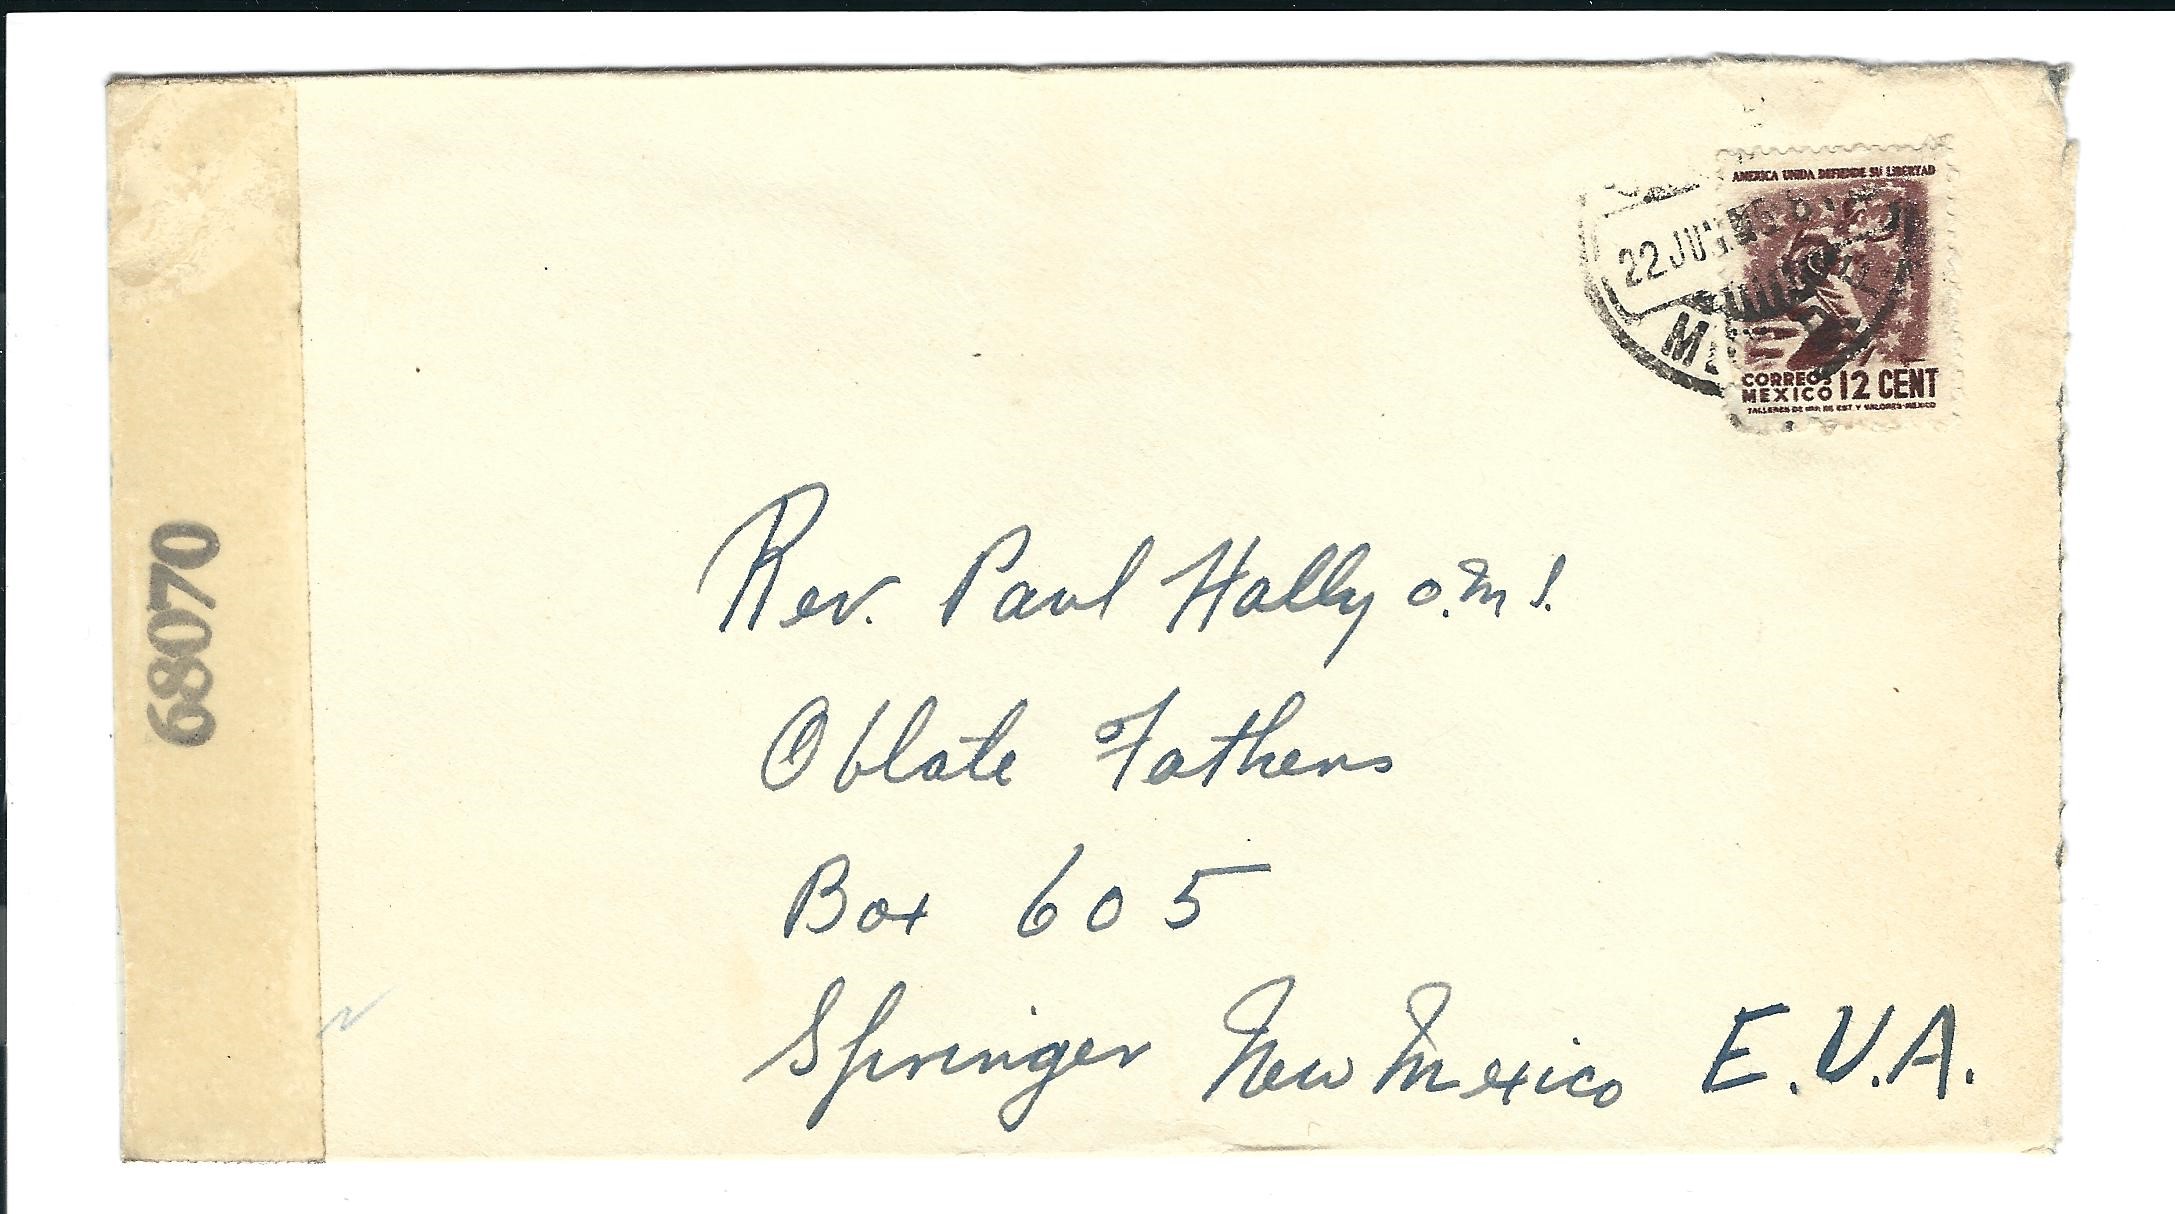 AMERICA UNIDA DEFIENDE SU LIBERTAD
22 JUN
CORREOS
MEXICO 12 CENT
TALLERES DE IMP. DE EST. Y VALORES-MEXICO
68070
Rev. Paul Hally O.M.I.
Oblate Fathers
Box 605
Springer New Mexico E.U.A.